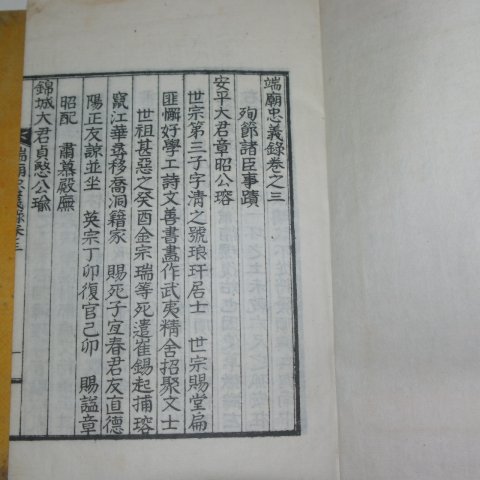 端廟忠義錄卷之三
殉節諸臣事蹟
安平大君章昭公瑢
世宗第三子字淸之號琅玕居士 世宗賜堂扁
匪懈好學工詩文善書畵作武夷精舍招聚文士
世祖甚惡之癸酉金宗瑞等死遣崔錫起捕瑢
竄江華嶽移喬洞籍家 賜死子宜春君友直德
陽正友諒並坐 英宗丁卯復官己卯 賜謚章
昭配 肅慕殿廡
錦城大君貞愍公瑜
端廟忠義錄卷三